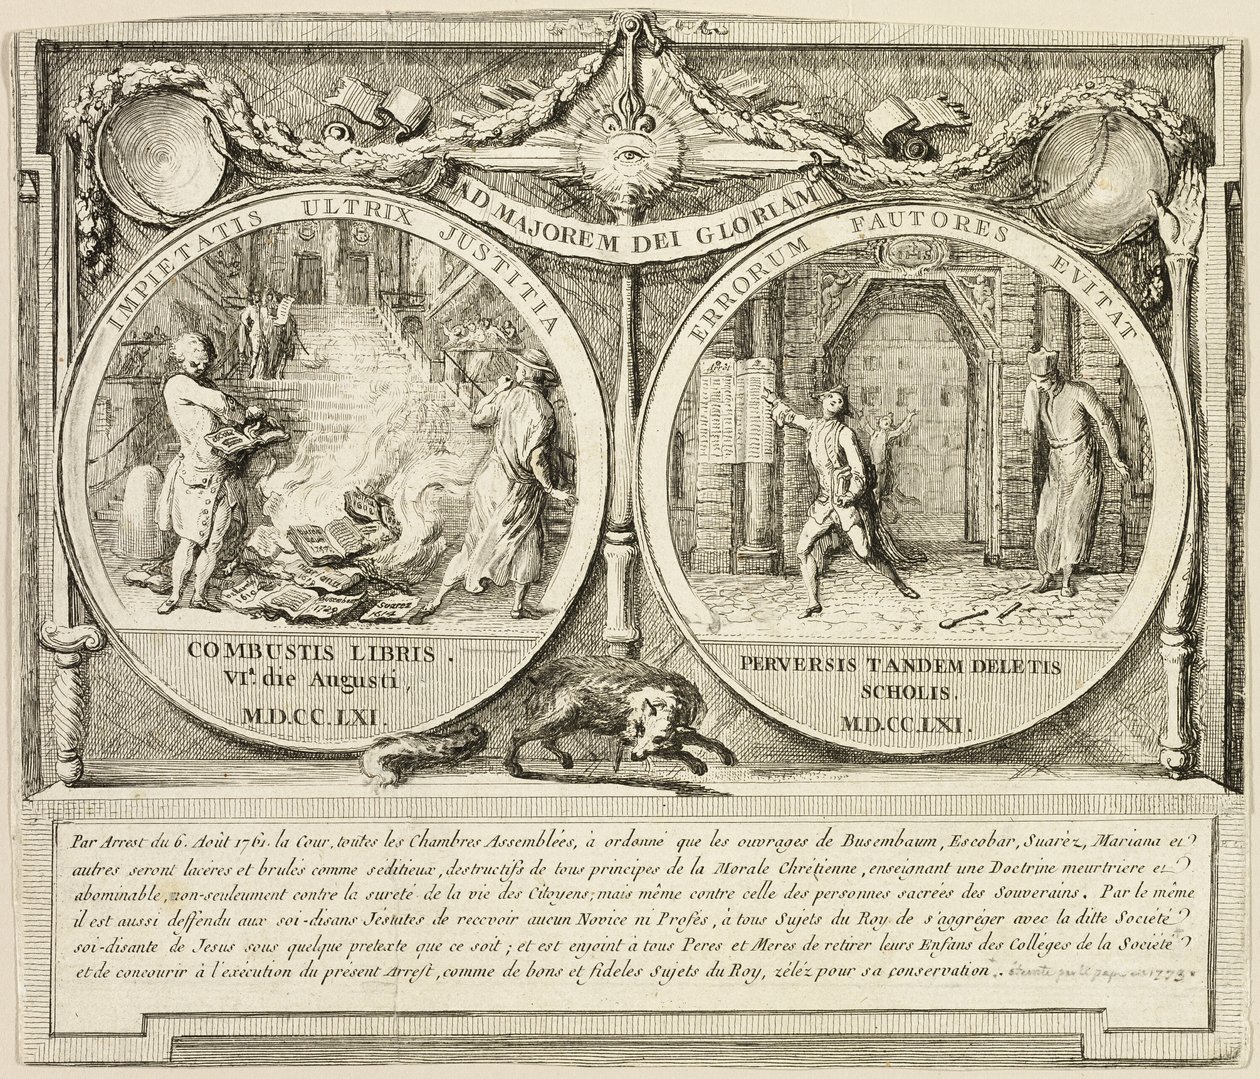 AD MAJOREM DEI GLORIAM
IMPIETATIS ULTRIX JUSTITIA
COMBUSTIS LIBRIS.
VIa. die Augusti,
M.D.CC.LXI.
Suarez
ERRORUM FAUTORES EVITAT
PERVERSIS TANDEM DELETIS
SCHOLIS.
M.D.CC.LXI.
Par Arrest du 6. Août 1761. la Cour, toutes les Chambres Assemblées, à ordonné que les ouvrages de Busembaum, Escobar, Suarèz, Mariana et
autres seront laceres et brulés comme séditieux, destructifs de tous principes de la Morale Chrétienne, enseignant une Doctrine meurtriere et
abominable, non-seulement contre la sureté de la vie des Citoyens; mais même contre celle des personnes sacrées des Souverains. Par le même
il est aussi deffendu aux soi-disans Jésuites de recevoir aucun Novice ni Profés, à tous Sujets du Roy de s'aggréger avec la ditte Société
soi-disante de Jesus sous quelque pretexte que ce soit; et est enjoint à tous Peres et Meres de retirer leurs Enfans des Colléges de la Société
et de concourir à l'exécution du présent Arrest, comme de bons et fideles Sujets du Roy, zéléz pour sa conservation. éteinte par le pape en 1773.